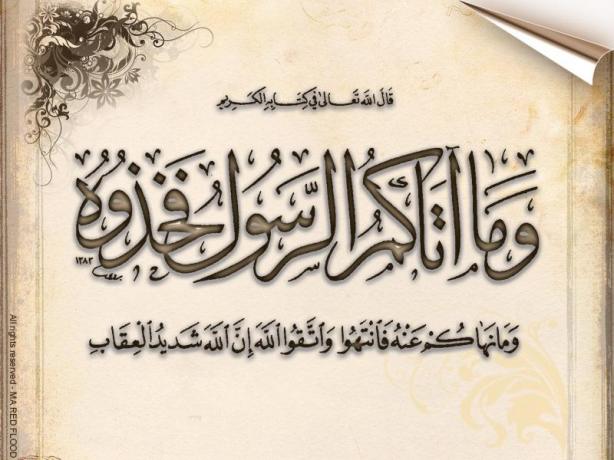 قَالَ اللَّهُ تَعَالَىٰ فِي كِتَابِهِ الْكَرِيمِ
وَمَا آتَاكُمُ الرَّسُولُ فَخُذُوهُ
١٣٨٣
وَمَا نَهَاكُمْ عَنْهُ فَانْتَهُوا وَاتَّقُوا اللَّهَ إِنَّ اللَّهَ شَدِيدُ الْعِقَابِ
All rights reserved - MA RED FLOOD